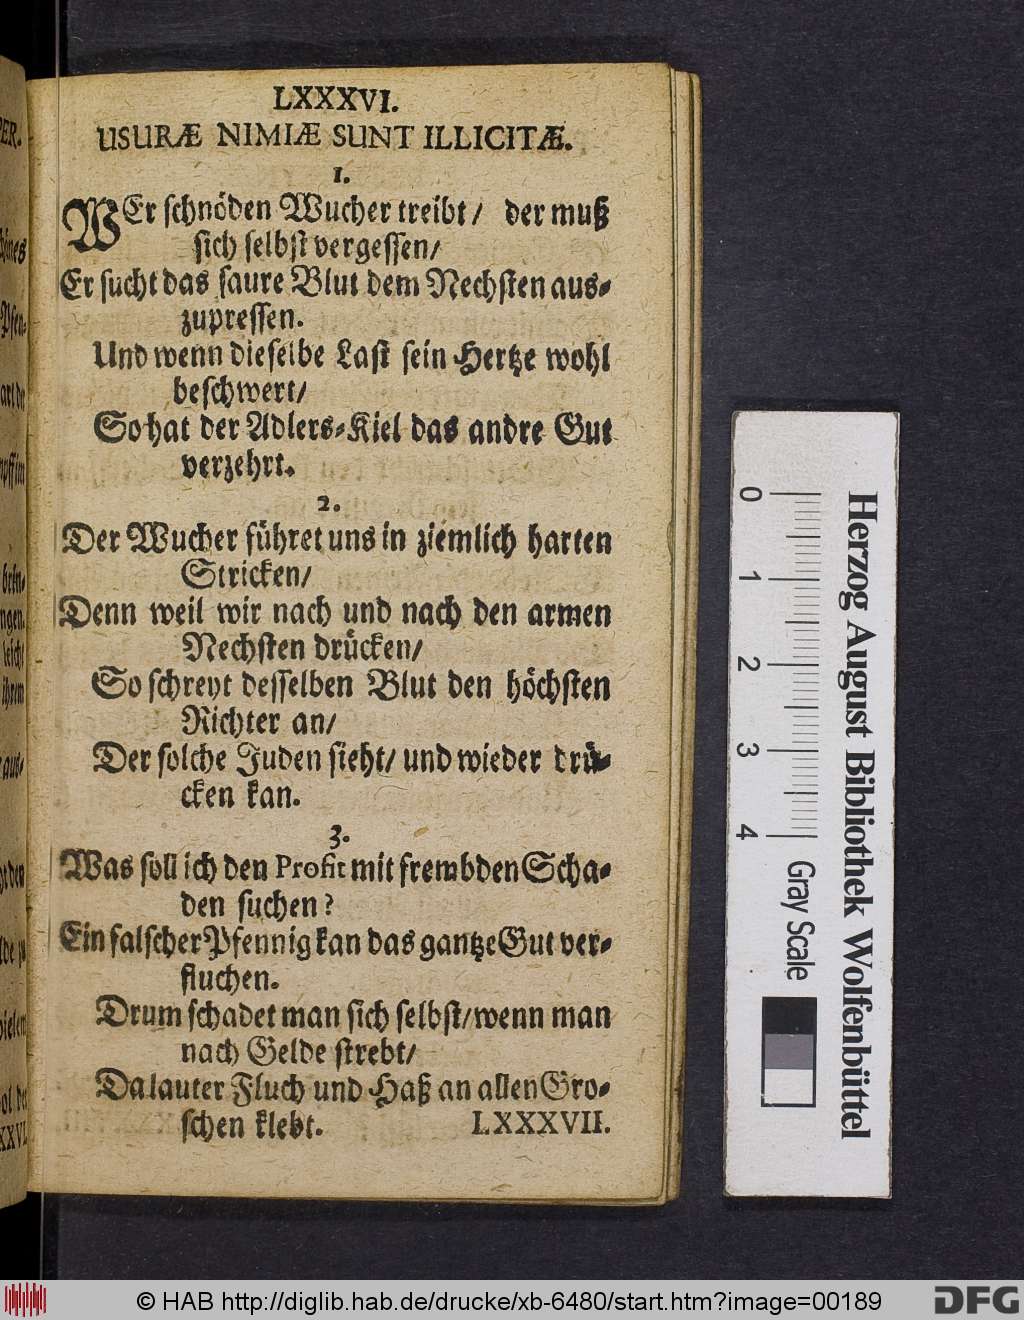 LXXXVI.
USURÆ NIMIÆ SUNT ILLICITÆ.
1.
WEr schnöden Wucher treibt/ der muß
sich selbst vergessen/
Er sucht das saure Blut dem Nechsten aus-
zupressen.
Und wenn dieselbe Last sein Hertze wohl
beschwert/
So hat der Adlers-Kiel das andre Gut
verzehrt.
2.
Der Wucher führet uns in ziemlich harten
Stricken/
Denn weil wir nach und nach den armen
Nechsten drücken/
So schreyt desselben Blut den höchsten
Richter an/
Der solche Juden sieht/ und wieder drü-
cken kan.
3.
Was soll ich den Profit mit frembden Scha-
den suchen?
Ein falscher Pfennig kan das gantze Gut ver-
fluchen.
Drum schadet man sich selbst/ wenn man
nach Gelde strebt/
Da lauter Fluch und Haß an allen Gro-
schen klebt.
LXXXVII.
Herzog August Bibliothek Wolfenbüttel
0 1 2 3 4
Gray Scale
© HAB http://diglib.hab.de/drucke/xb-6480/start.htm?image=00189
DFG